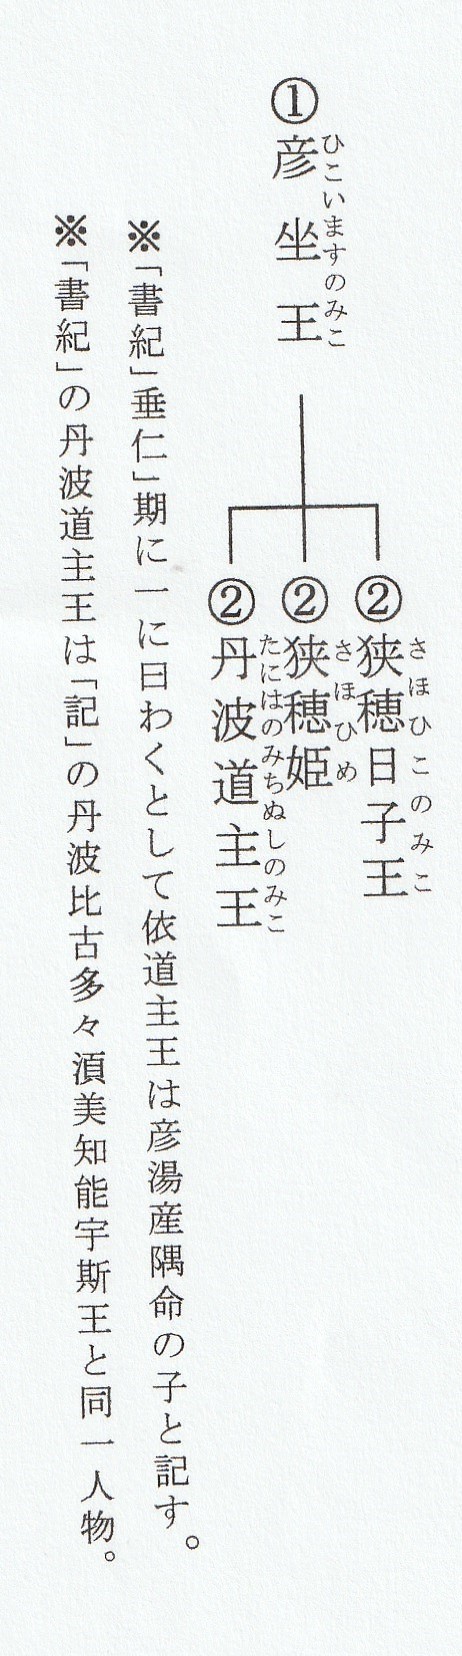 ①彦坐王
ひこいますのみこ
②狭穂日子王
さほひこのみこ
②狭穂姫
さほひめ
②丹波道主王
たにはのみちぬしのみこ
※「書紀」垂仁」期に一に曰わくとして依道主王は彦湯産隅命の子と記す。
※「書紀」の丹波道主王は「記」の丹波比古多々湏美知能宇斯王と同一人物。